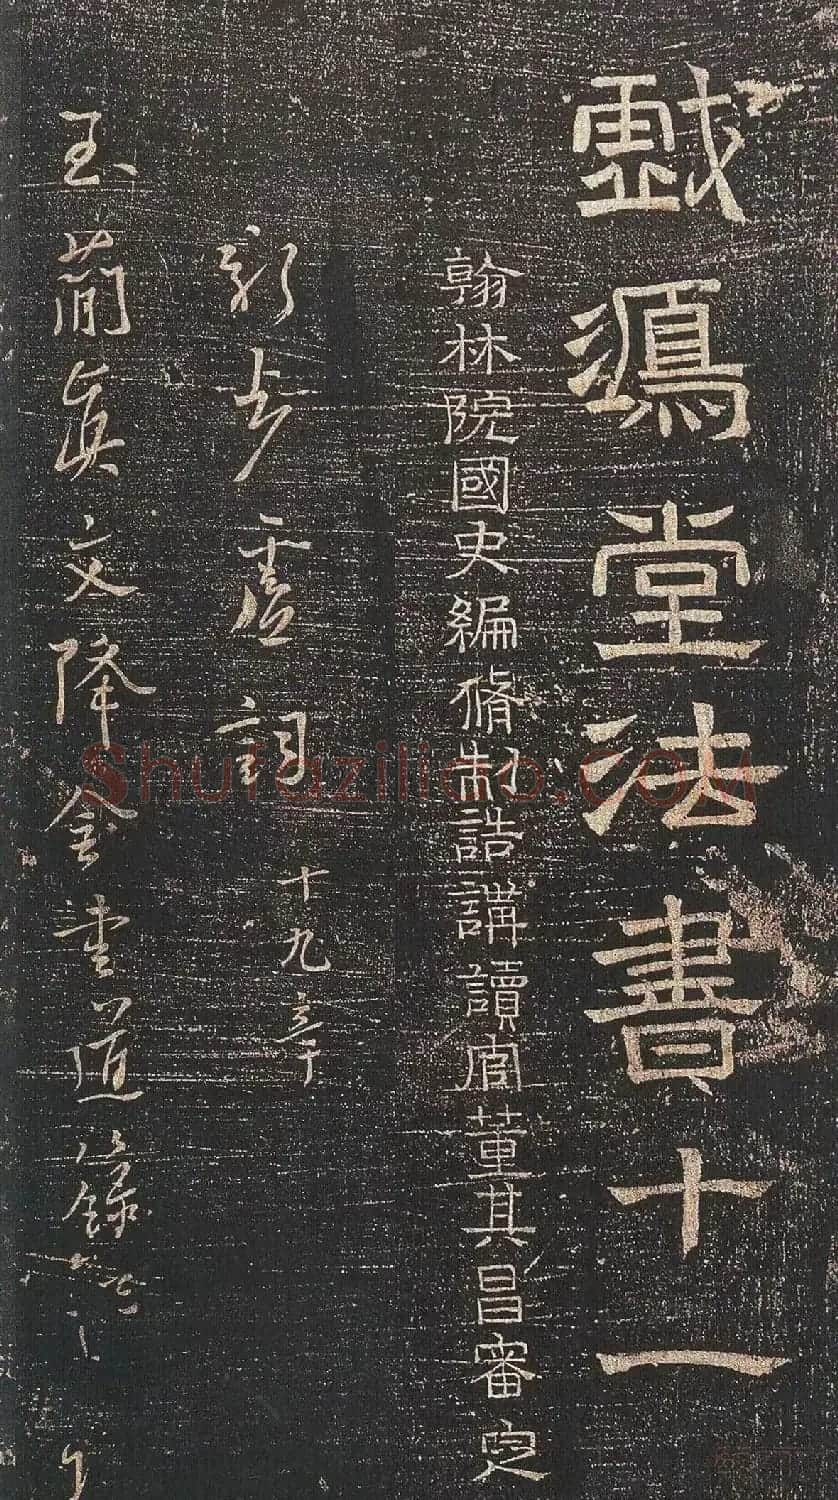 戲鴻堂法書十一
翰林院國史編脩制誥講讀官董其昌審定
新步虛詞十九章
玉簡真文降金書道籙
Shufaziliao.COM